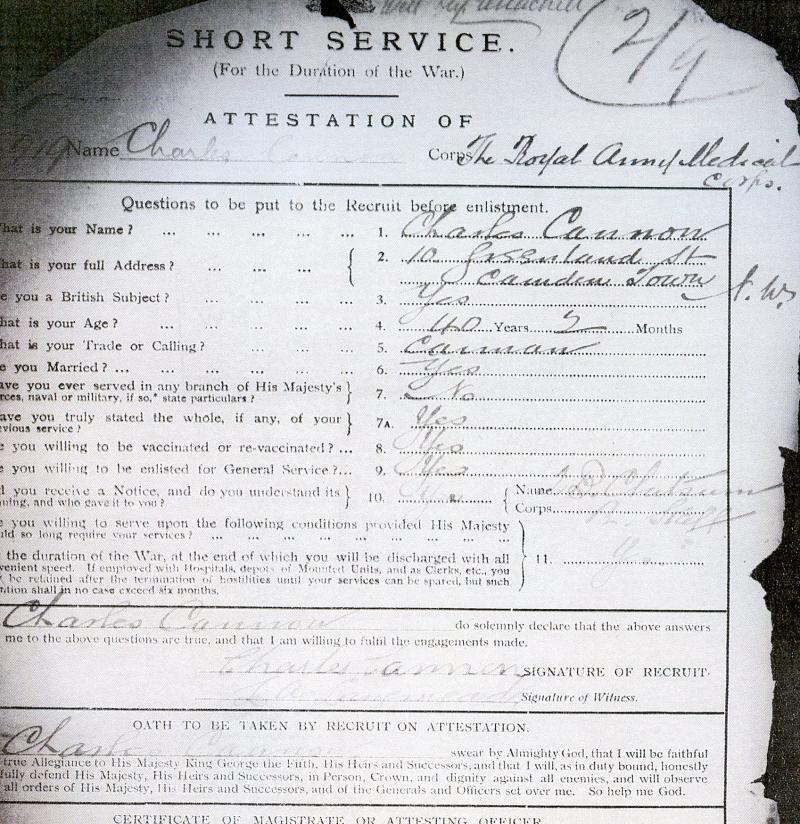 2/9
SHORT SERVICE.
(For the Duration of the War.)
ATTESTATION OF
Name Charles Cannon Corps The Royal Army Medical
Corps.
Questions to be put to the Recruit before enlistment.
hat is your Name? ... ... ... ... ... 1. Charles Cannon
hat is your full Address? ... ... ... { 2. 10 Greenland St
Camden Town N.W.
e you a British Subject? ... ... ... ... 3. Yes
hat is your Age? ... ... ... ... ... 4. 40 Years 2 Months
hat is your Trade or Calling? ... ... ... 5. Carman
e you Married? ... ... ... ... ... ... 6. Yes
ave you ever served in any branch of His Majesty's
rces, naval or military, if so,* state particulars? } 7. No
ave you truly stated the whole, if any, of your
evious service? } 7A. Yes
e you willing to be vaccinated or re-vaccinated? ... 8. Yes
e you willing to be enlisted for General Service?... 9. Yes
d you receive a Notice, and do you understand its
ning, and who gave it to you? } 10. Yes { Name
Corps
e you willing to serve upon the following conditions provided His Majesty
uld so long require your services? ... ... ... ... ... ... ...
the duration of the War, at the end of which you will be discharged with all
venient speed. If employed with Hospitals, depots of Mounted Units, and as Clerks, etc., you
be retained after the termination of hostilities until your services can be spared, but such
ntion shall in no case exceed six months. } 11. Yes
Charles Cannon do solemnly declare that the above answers
me to the above questions are true, and that I am willing to fulfil the engagements made.
Charles Cannon SIGNATURE OF RECRUIT.
Signature of Witness.
OATH TO BE TAKEN BY RECRUIT ON ATTESTATION.
Charles Cannon swear by Almighty God, that I will be faithful
true Allegiance to His Majesty King George the Fifth, His Heirs and Successors, and that I will, as in duty bound, honestly
fully defend His Majesty, His Heirs and Successors, in Person, Crown, and dignity against all enemies, and will observe
all orders of His Majesty, His Heirs and Successors, and of the Generals and Officers set over me. So help me God.
CERTIFICATE OF MAGISTRATE OR ATTESTING OFFICER